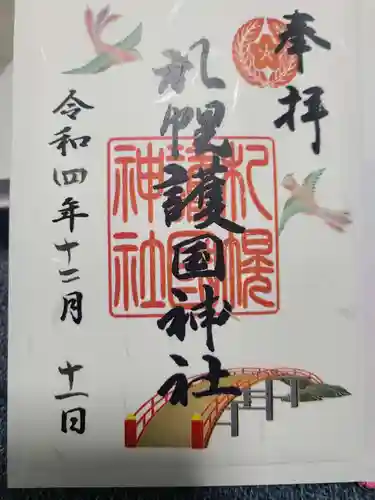 奉拝
札幌護国神社
札幌護国神社
令和四年十二月 十一日